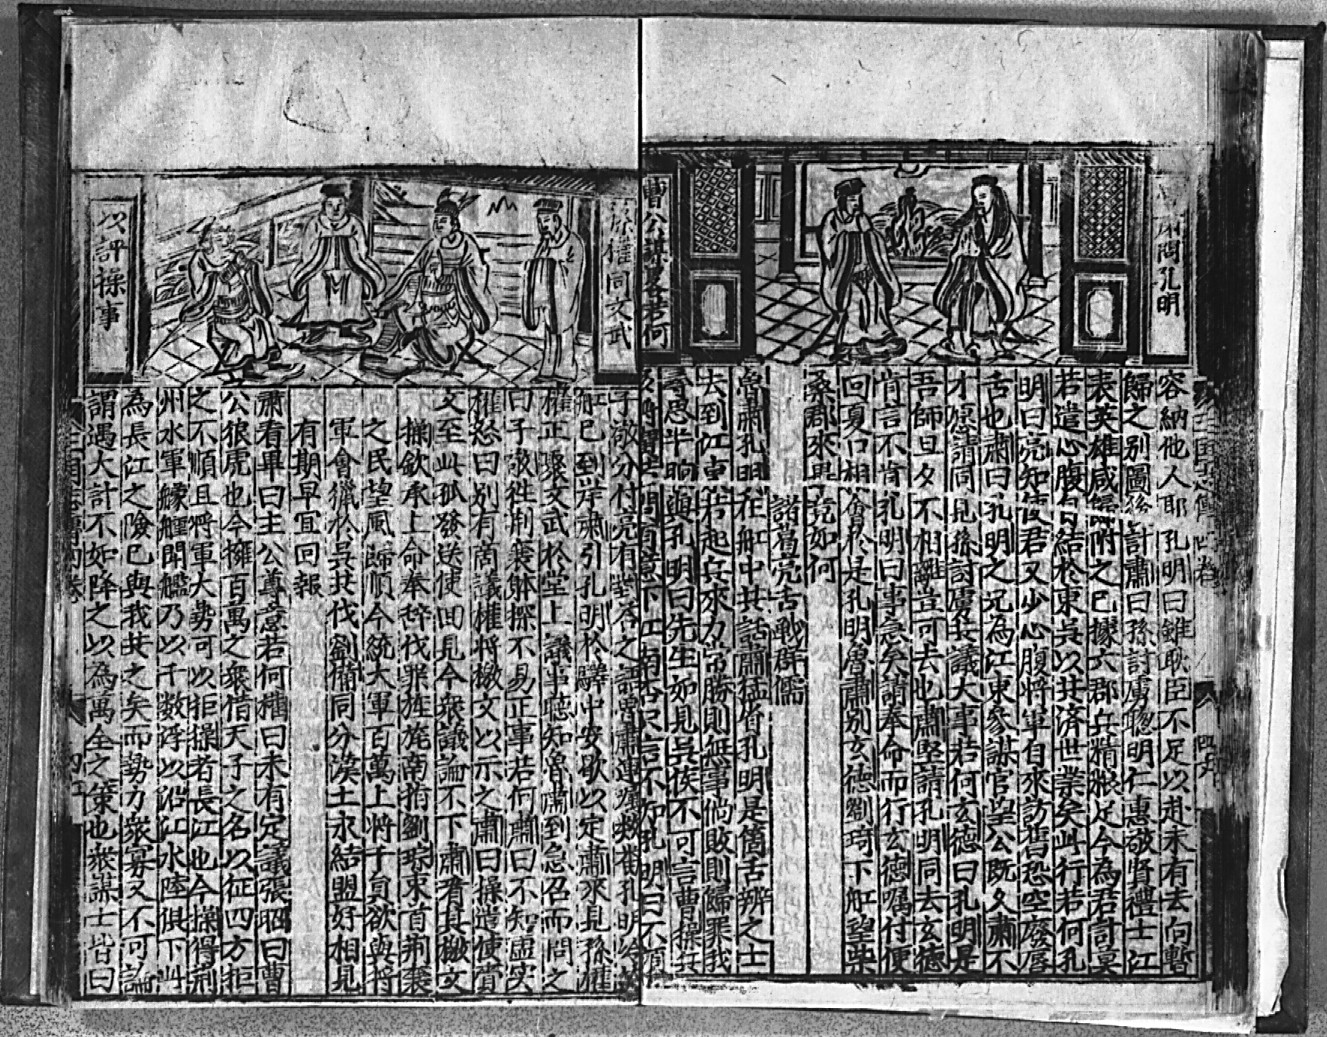 問孔明
曹公謀畧若何
容納他人耶孔明曰雖耿臣不足以赴未有去向暫
歸之别圖後計肅曰孫討虜聰明仁惠敬賢禮士江
表英雄咸歸附之已據六郡兵精粮足今為君計莫
若遣心腹自結於東吳以共済世業矣此行若何孔
明曰亮知使君又少心腹將軍自來訪舊恐空廢唇
舌也肅曰孔明之兄為江東參謀官望公既久肅不
才愿請同見孫討虜共議大事若何玄德曰孔明是
吾師旦夕不相離豈可去也肅堅請孔明同去玄德
肯言不肯孔明曰事急矣請奉命而行玄德囑付便
回夏口相會於是孔明魯肅别玄德劉琦下舡望柴
桑郡來畢竟如何
諸葛亮舌戰群儒
魯肅孔明在舡中共話肅猛省孔明是箇舌辨之士
去到江東若起兵來勝則無事倘敗則歸罪我
尋思半晌與孔明曰先生如見吳侯不可言曹操兵
問有意下江南否只言不知孔明曰不須
孫權同文武
以評操事
子敬分付亮有對答之語魯肅連囑數番孔明冷笑
舡已到岸肅引孔明於驛中安歇以定肅來見孫權
權正聚文武於堂上議事聽知魯肅到急召而問之
曰子敬徃荆襄躰探不易正事若何肅曰不知虛实
權怒曰别有箇議權將檄文以示之肅曰操遣使賫
文至此孤發送使回見今衆議論不下肅看其檄文
操欽承上命奉辞伐罪旌旄南指劉琮束首荆襄
之民望風歸順今統大軍百萬上將千員欲與將
軍會獵於吳共伐劉備同分漢土永結盟好相見
有期早宜回報
肅看畢曰主公尊意若何權曰未有定議張昭曰曹
公狼虎也今擁百萬之衆借天子之名以征四方拒
之不順且將軍大勢可以拒操者長江也今操得荆
州水軍艨艟閗艦乃以千数浮以沿江水陸俱下此
為長江之險已與我共之矣而勢力衆寡又不可論
謂遇大計不如降之以為萬全之策也衆謀士皆曰